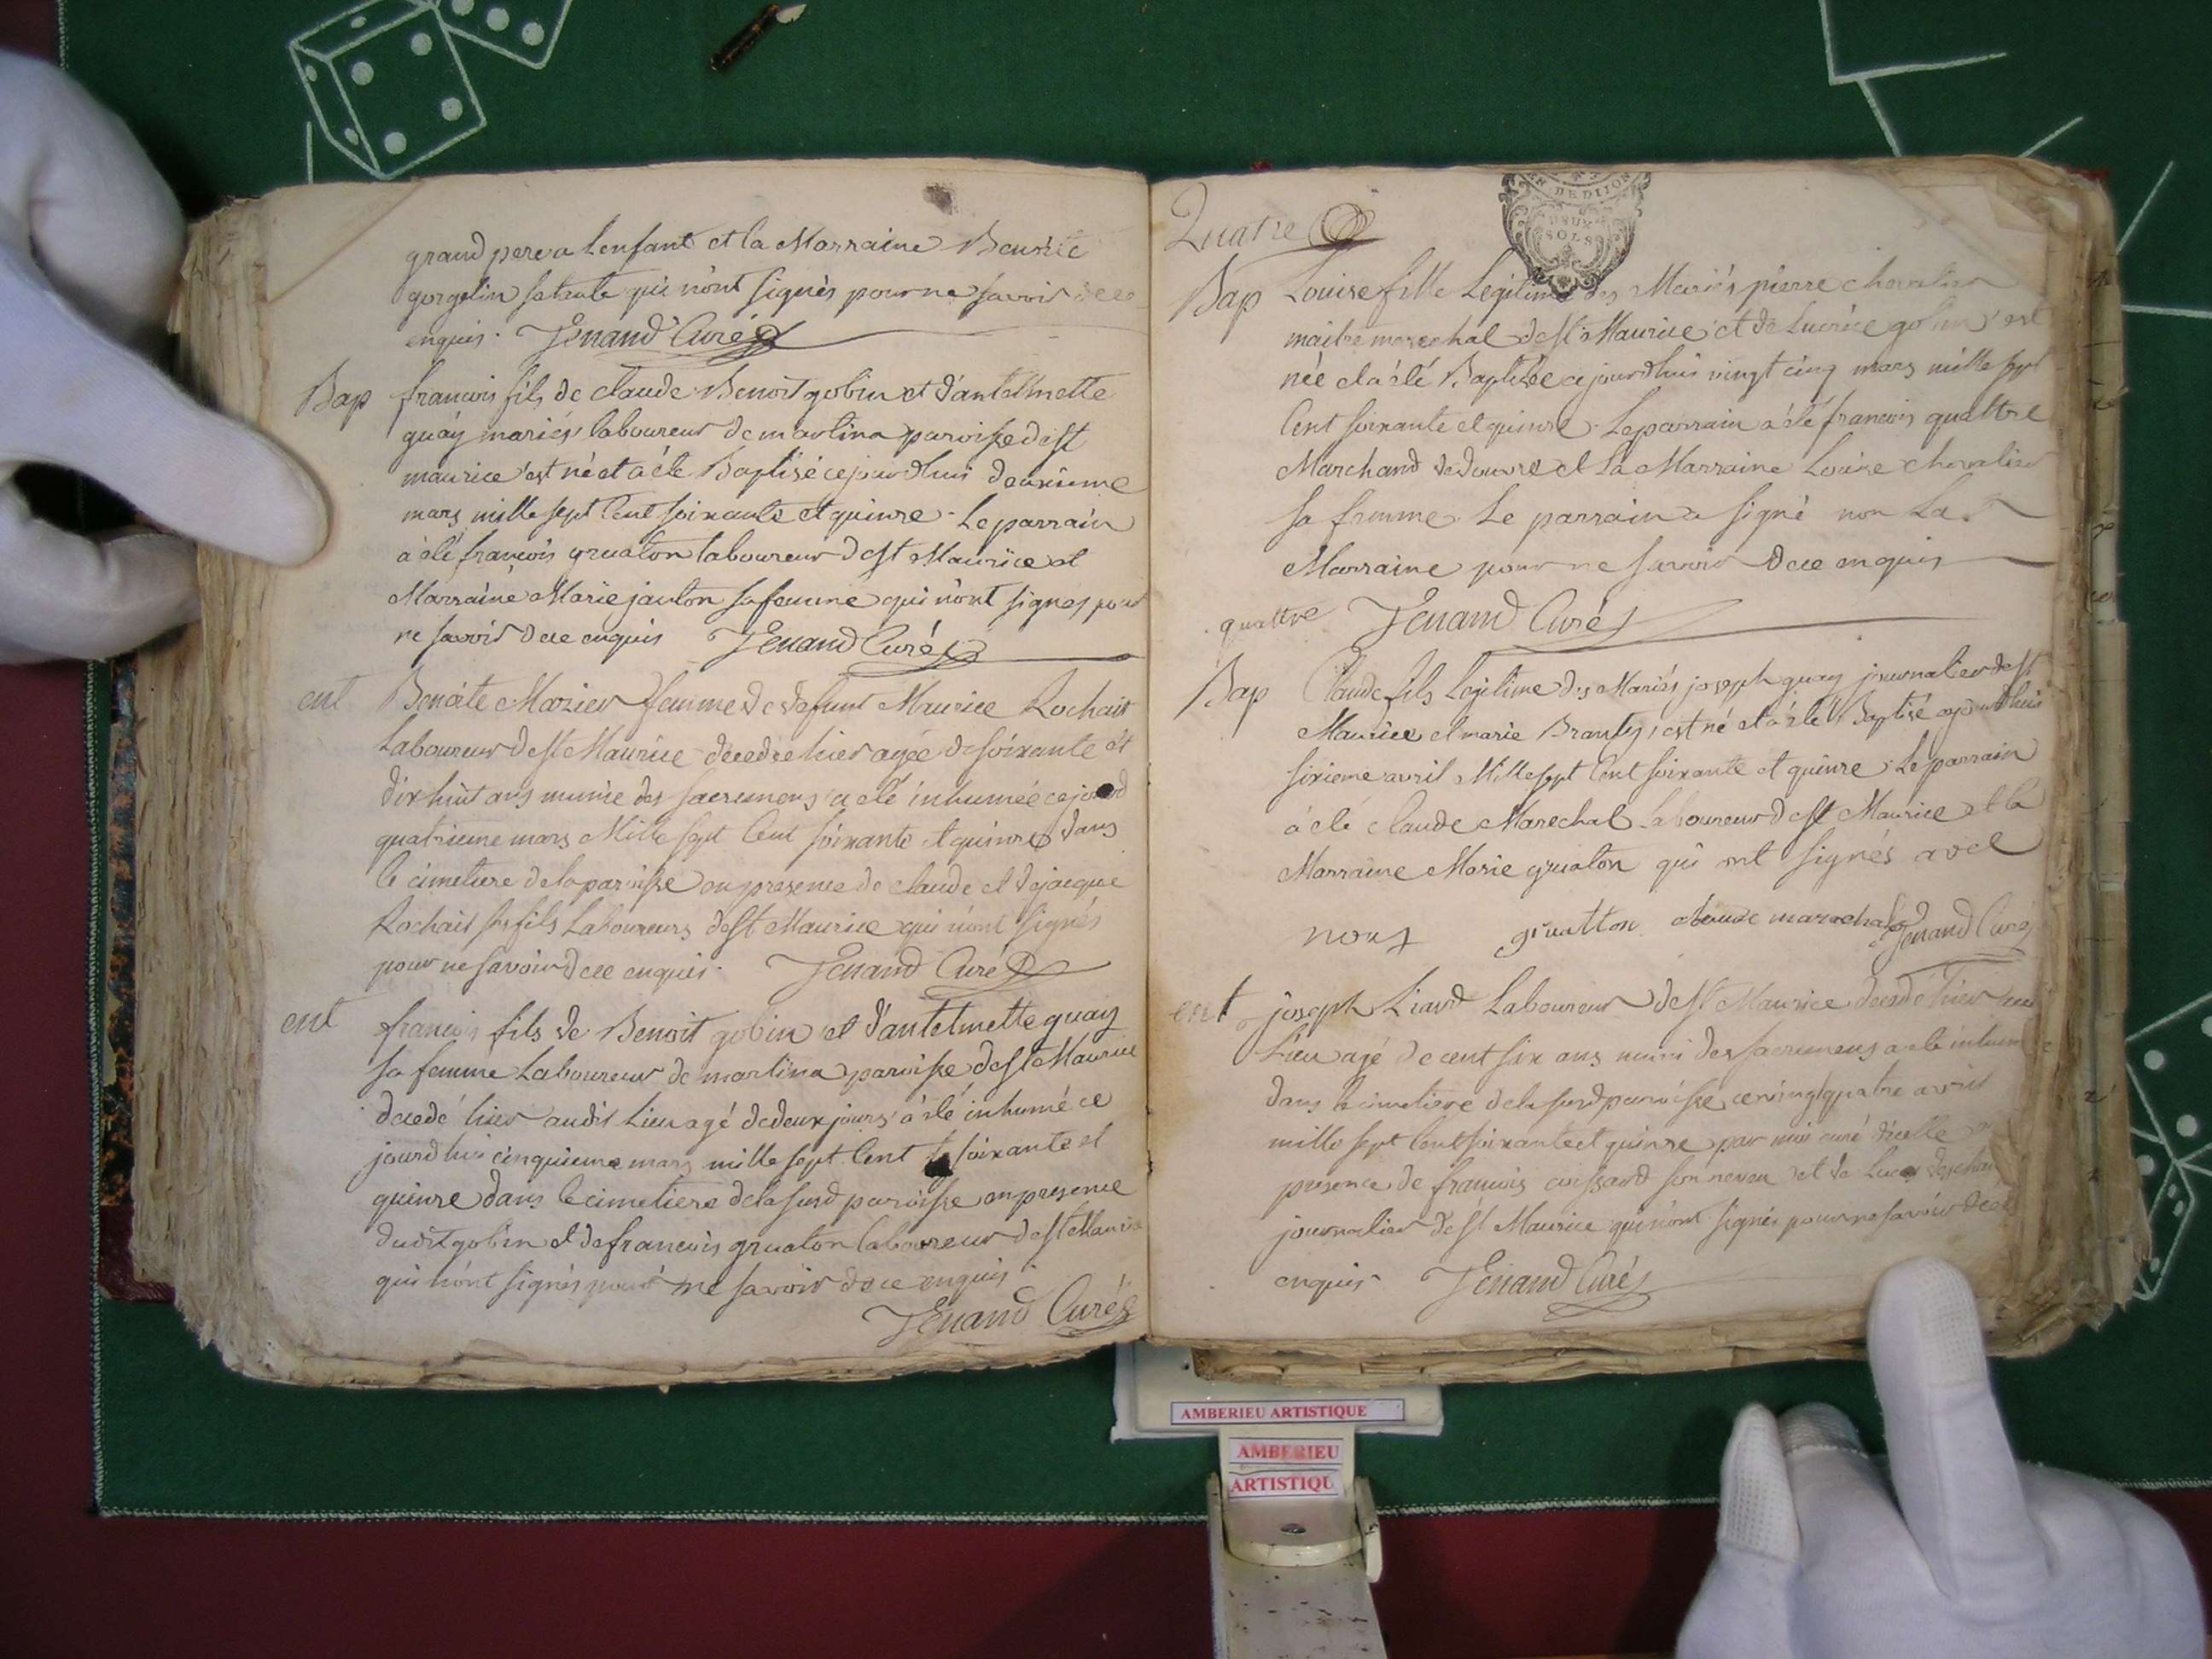 grand pere a lenfant et la Marraine Benoite
gorgelin sa tante qui n'ont signès pour ne savoir de ce
enquis. Jenand Curé
Bap francois fils de claude Benoit gobin et d'antelmette
guay mariés laboureur de martina paroisse de st
maurice est né et a été Baptisé cejourdhui deuxieme
mars mille sept Cent soixante et quinze. Le parrain
a été francois gruaton laboureur de st Maurice et
Marraine Marie janton sa femme qui n'ont signés pour
ne savoir de ce enquis Jenand Curé
ent Benoite Mozier femme de defunt Maurice Rochait
Laboureur de st Maurice decedée hier agée de soixante et
dix huit ans munie des sacremens a été inhumée cejourd
quatrieme mars Mille sept Cent soixante et quinze dans
le cimetiere de la paroisse en presence de claude et de jacque
Rochait ses fils Laboureurs de st Maurice qui n'ont signés
pour ne savoir de ce enquis. Jenand Curé
ent francois fils de Benoit gobin et d'antelmette guay
sa femme Laboureur de martina paroisse de st Maurice
decedé hier audit Lieu agé de deux jours a été inhumé ce
jourdhui cinquieme mars mille sept Cent soixante et
quinze dans le cimetiere de la susd paroisse en presence
dudit gobin et de francois gruaton laboureur de st Maurice
qui n'ont signés pour ne savoir de ce enquis
Jenand Curé
Quatre
EN DE DIJON
DEUX
SOLS
Bap Louise fille Legitime des Mariés pierre chevalier
maitre marechal de st Maurice et de Lucrece gobin est
née et a été Baptisée cejourdhui vingt cinq mars mille sept
Cent soixante et quinze. Le parrain a été francois quattre
Marchand de douvre et La Marraine Louise chevalier
sa femme. Le parrain a signé non La
Marraine pour ne savoir de ce enquis
quattre Jenand Curé
Bap Claude fils Legitime des Mariés joseph guay journalier de st
Maurice et marie Branty, est né et a été Baptisé cejourdhui
sixieme avril Mille sept Cent soixante et quinze. Le parrain
a été claude Marechal Laboureur de st Maurice et la
Marraine Marie gruaton qui ont signés avec
nous gruatton claude marechal Jenand Curé
ent joseph Liard Laboureur de st Maurice decedé hier
Lieu agé de cent six ans muni des sacremens a été inhumé
dans le cimetiere de la susd paroisse ce vingt quatre avril
mille sept Cent soixante et quinze par moi curé d'icelle
presence de francois cuissard son neveu et de Luc
journalier de st Maurice qui n'ont signés pour ne savoir de ce
enquis Jenand Curé
AMBERIEU ARTISTIQUE
AMBERIEU
ARTISTIQU